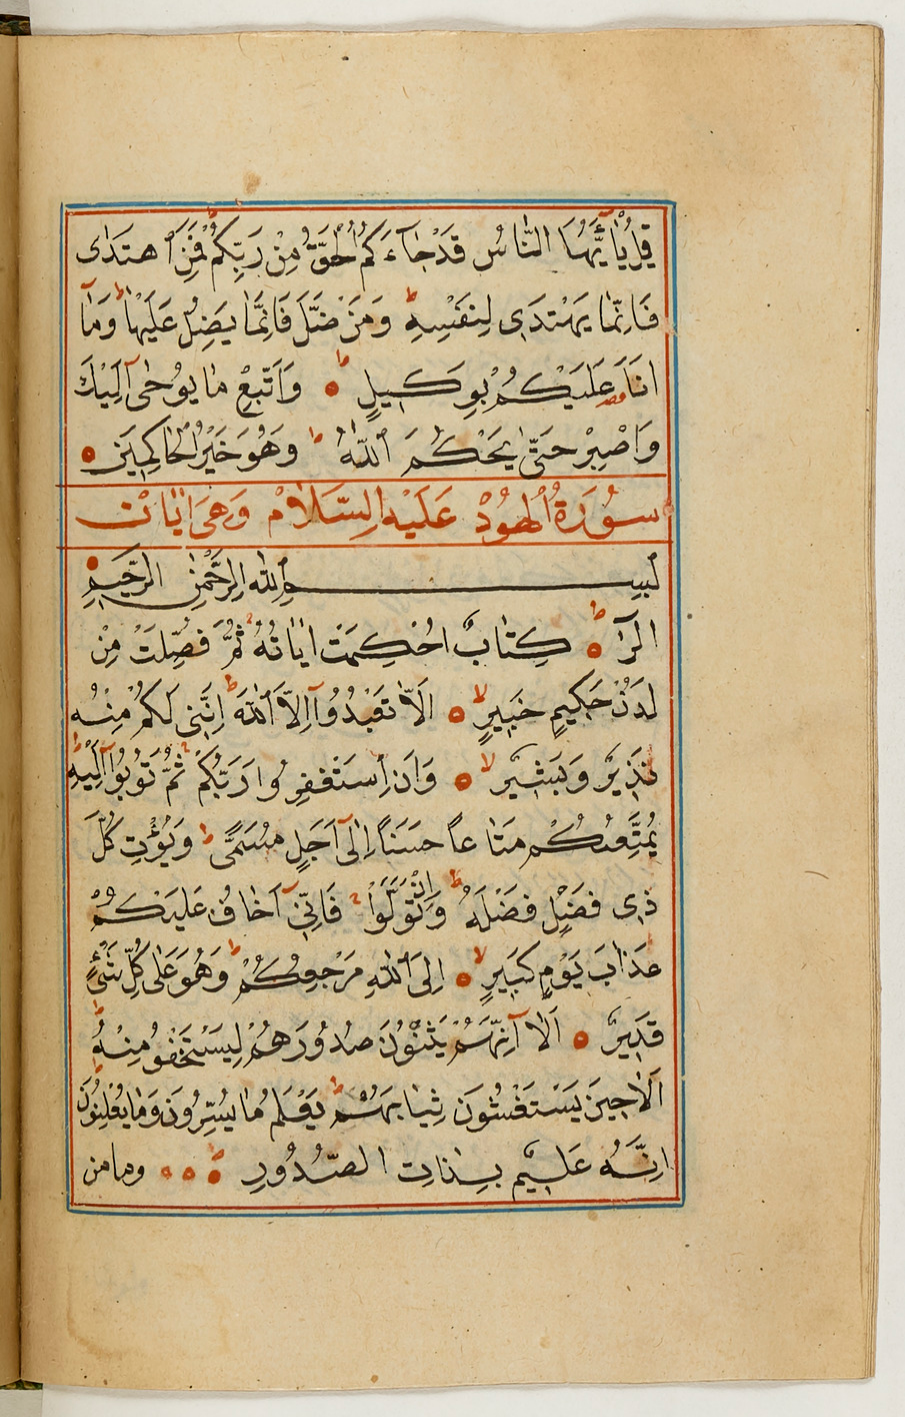 قُلْ يَٰٓأَيُّهَا النَّاسُ قَدْ جَآءَكُمُ الْحَقُّ مِنْ رَبِّكُمْ ۖ فَمَنِ ٱهْتَدٰى
فَاِنَّمَا يَهْتَدٖى لِنَفْسِهٖ ۚ وَمَنْ ضَلَّ فَاِنَّمَا يَضِلُّ عَلَيْهَا ۚ وَمَٓا
اَنَا۬ عَلَيْكُمْ بِوَكٖيلٍ ۜ وَاتَّبِعْ مَا يُوحٰٓى اِلَيْكَ
وَاصْبِرْ حَتّٰى يَحْكُمَ ٱللّٰهُ ۚ وَهُوَ خَيْرُ الْحَاكِمٖينَ
سُورَةُ الْهُودْ عَلَيْهِ السَّلَامْ وَهِىَ اٰيَاتْ
بِسْمِ اللّٰهِ الرَّحْمٰنِ الرَّحٖيمِ
الٓرٰ كِتَابٌ اُحْكِمَتْ اٰيَاتُهُ ثُمَّ فُصِّلَتْ مِنْ
لَدُنْ حَكٖيمٍ خَبٖيرٍ اَلَّا تَعْبُدُٓوا اِلَّا ٱللّٰهَ اِنَّنٖى لَكُمْ مِنْهُ
نَذٖيرٌ وَبَشٖيرٌ وَاَنِ اسْتَغْفِرُوا رَبَّكُمْ ثُمَّ تُوبُٓوا اِلَيْهِ
يُمَتِّعْكُمْ مَتَاعًا حَسَنًا اِلٰٓى اَجَلٍ مُسَمًّى وَيُؤْتِ كُلَّ
ذٖى فَضْلٍ فَضْلَهُ وَاِنْ تَوَلَّوْا فَاِنّٖٓى اَخَافُ عَلَيْكُمْ
عَذَابَ يَوْمٍ كَبٖيرٍ اِلَى ٱللّٰهِ مَرْجِعُكُمْ وَهُوَ عَلٰى كُلِّ شَىْءٍ
قَدٖيرٌ اَلَٓا اِنَّهُمْ يَثْنُونَ صُدُورَهُمْ لِيَسْتَخْفُوا مِنْهُ
اَلَا حٖينَ يَسْتَغْشُونَ ثِيَابَهُمْ يَعْلَمُ مَا يُسِرُّونَ وَمَا يُعْلِنُونَ
اِنَّهُ عَلٖيمٌ بِذَاتِ الصُّدُورِ وما من